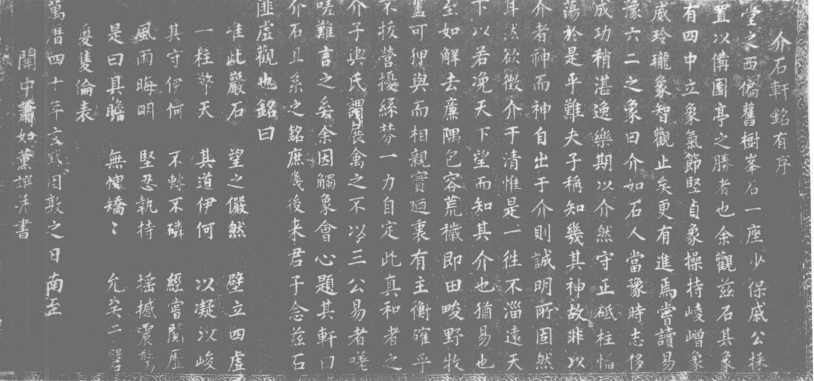 介石軒銘有序
堂之西偏舊樹峯石一座少保戚公採
置以備園亭之勝者也余觀茲石其象
有四中立象氣節堅貞象操持崚嶒象
威玲瓏象智觀止矣更有進焉嘗讀易
豫六二之象曰介如石人當豫時志侈
成功稍湛逸樂期以介然守正砥柱恬
蕩於是乎難夫子稱知幾其神故非以
介者神而神自出于介則誠明所固然
耳法欲徵介于清惟是一往不淄遠天
下以若浼天下望而知其介也猶易也
至如解去廉隅包容荒穢即田畯野牧
盡可狎與而相親實迺裏有主衡確乎
不拔營擾絲棼一力自定此真和者之
介子輿氏謂展禽之不以三公易者嗟
嗟難言之矣余因觸象會心題其軒曰
介石且系之銘庶幾後来君子念茲石
匪虛觀也銘曰
維此巖石 望之儼然 壁立四虛
一柱擎天 其道伊何 以凝以峻
其守伊何 不 不磷 飽嘗閱歷
風雨晦明 堅忍執持 搖撼震驚
是曰具瞻 無 矯矯 允矣二
夐隻倫表
萬曆四十年 敦之日南至
閩中蕭如薰譔并書